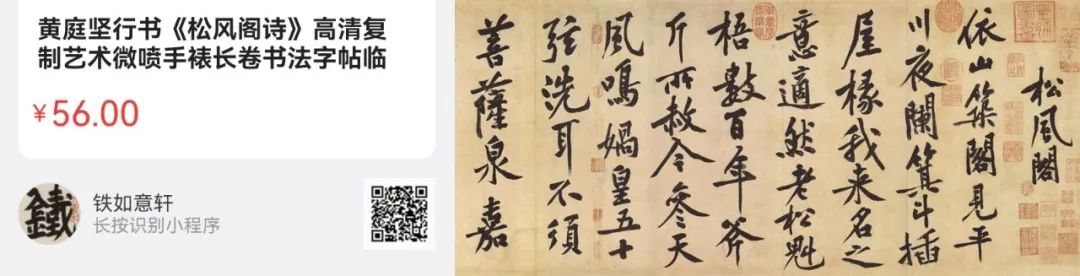 黄庭坚行书《松风阁诗》高清复
制艺术微喷手裱长卷书法字帖临
¥56.00
鐵
铁如意轩
长按识别小程序
松風閣
依山築閣見平
川夜闌箕斗插
屋椽我来名之
意適然老松魁
梧數百年斧
斤所赦今參天
風鳴媧皇五十
弦洗耳不須
菩薩泉嘉